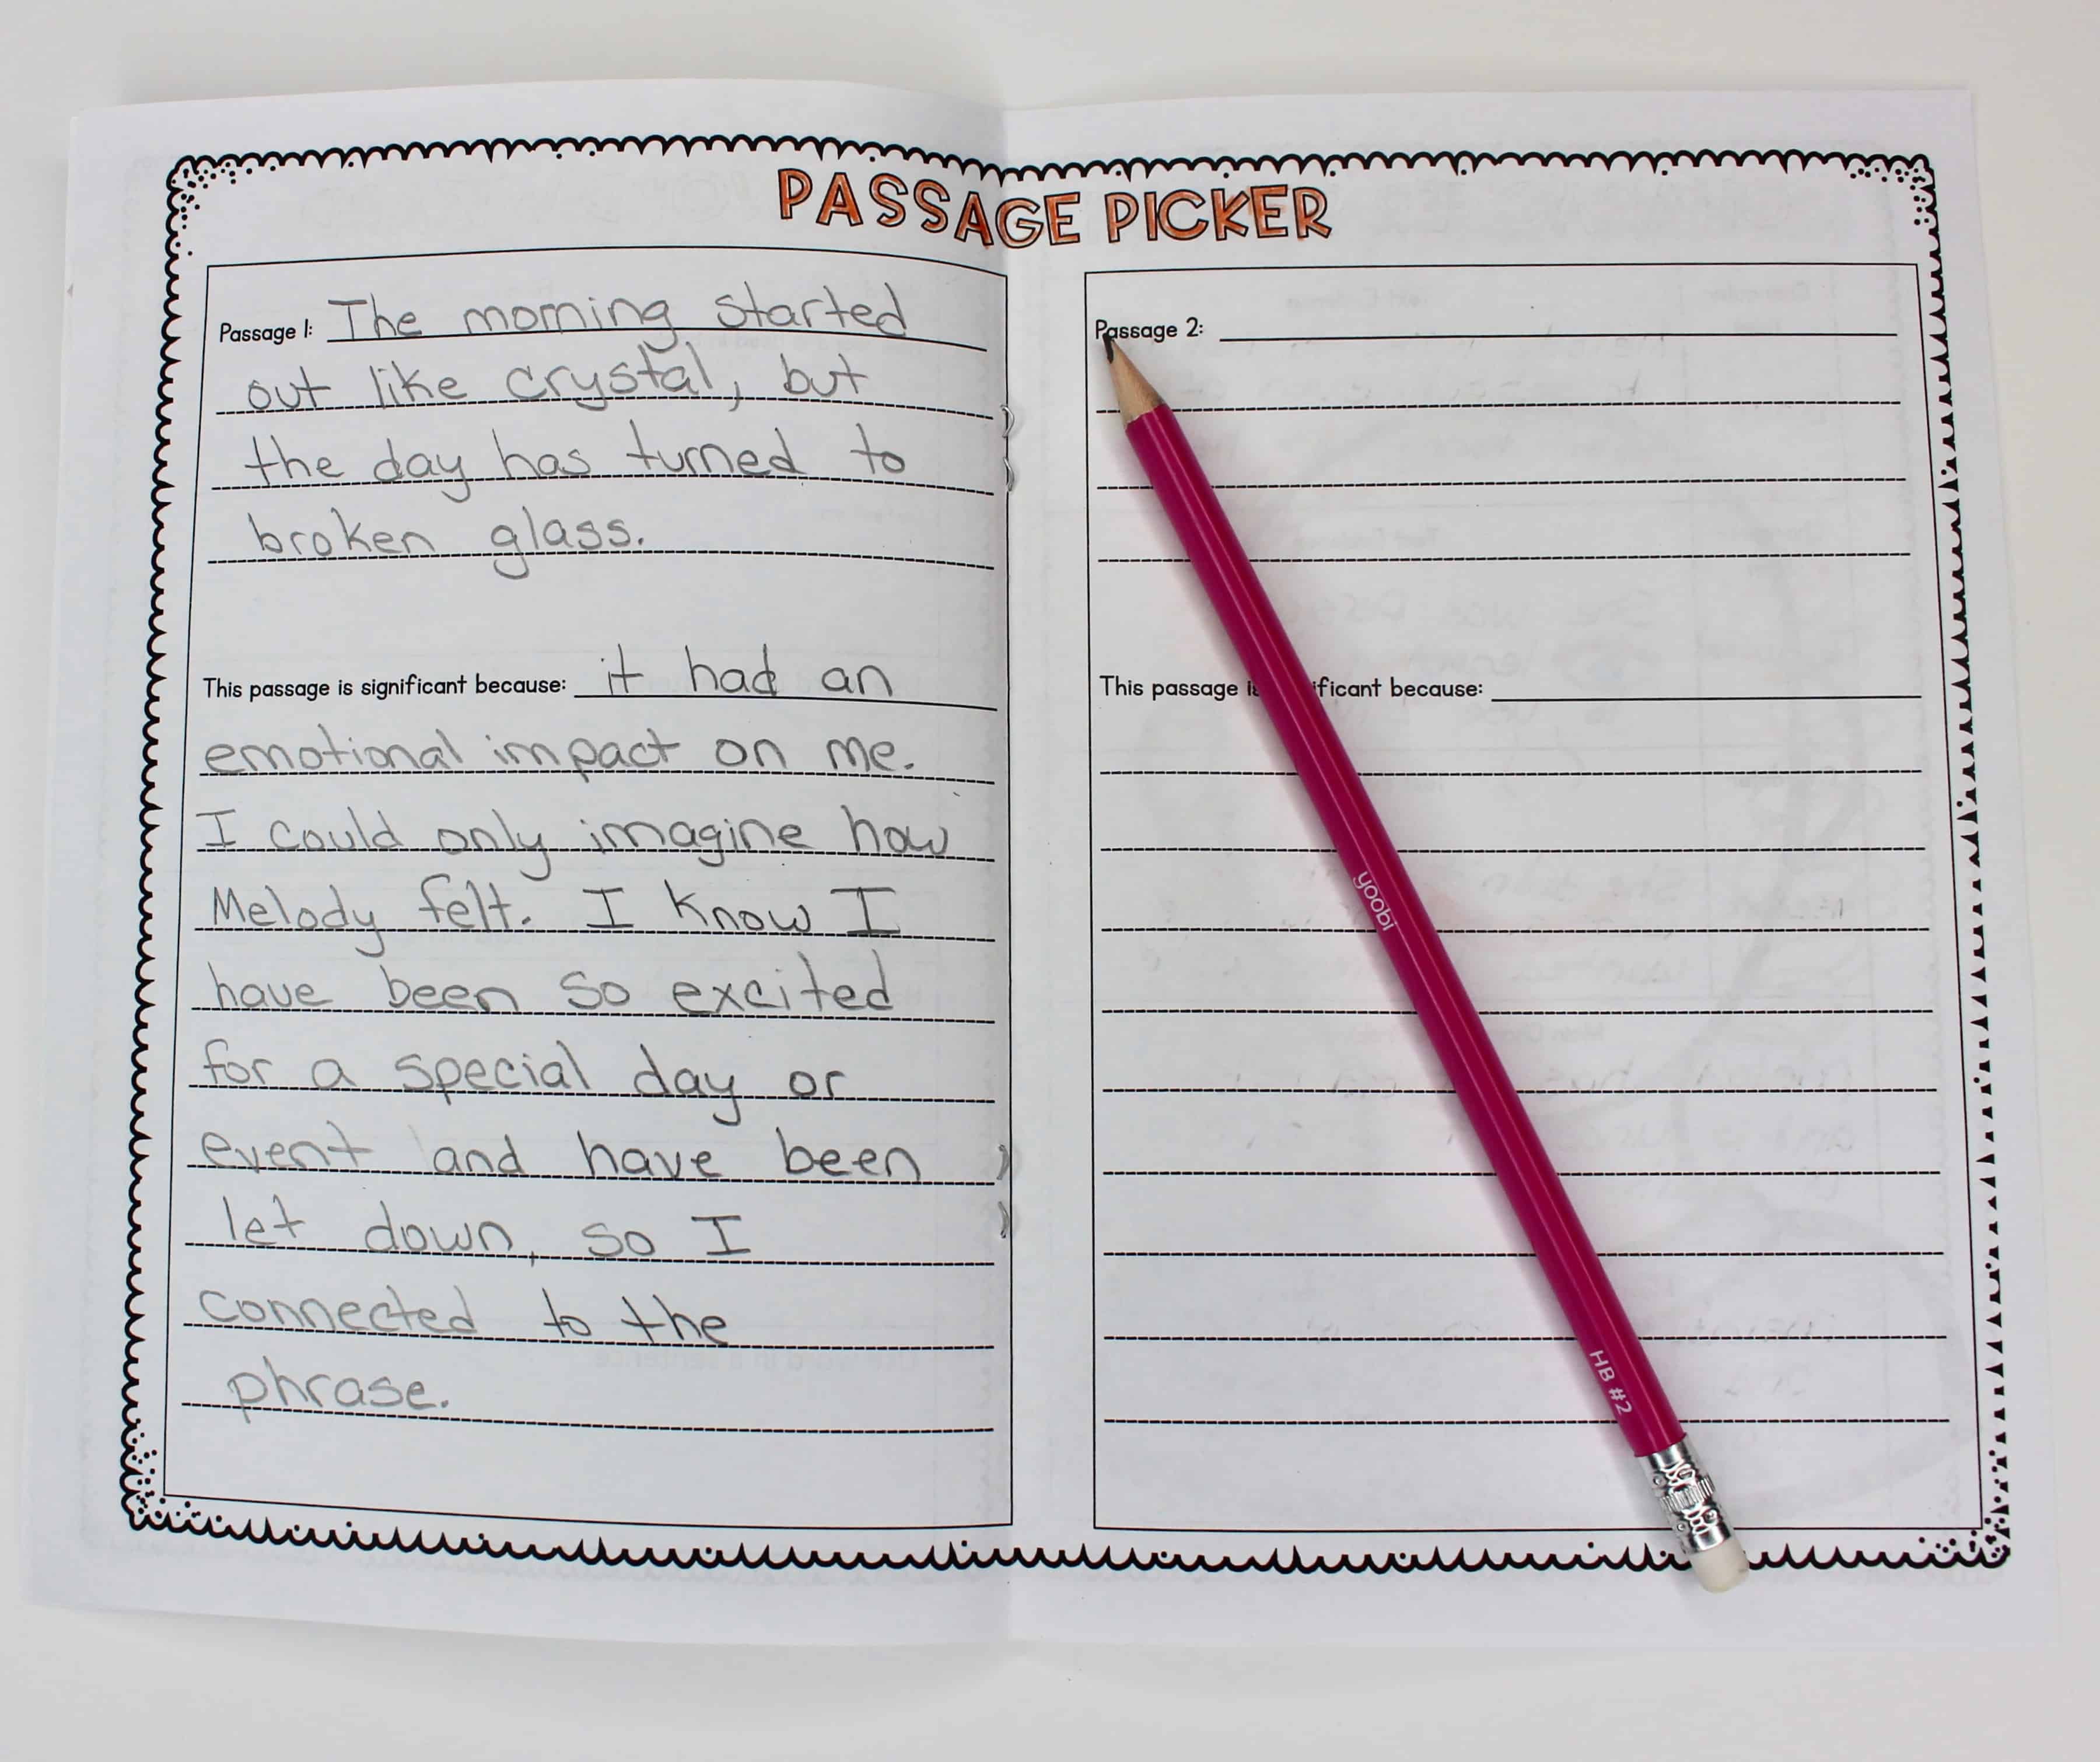 PASSAGE PICKER
Passage 1: The morning started
out like crystal, but
the day has turned to
broken glass.
This passage is significant because: it had an
emotional impact on me.
I could only imagine how
Melody felt. I know I
have been so excited
for a special day or
event and have been
let down, so I
connected to the
phrase.
Passage 2:
This passage is ificant because:
yoobi
HB #2